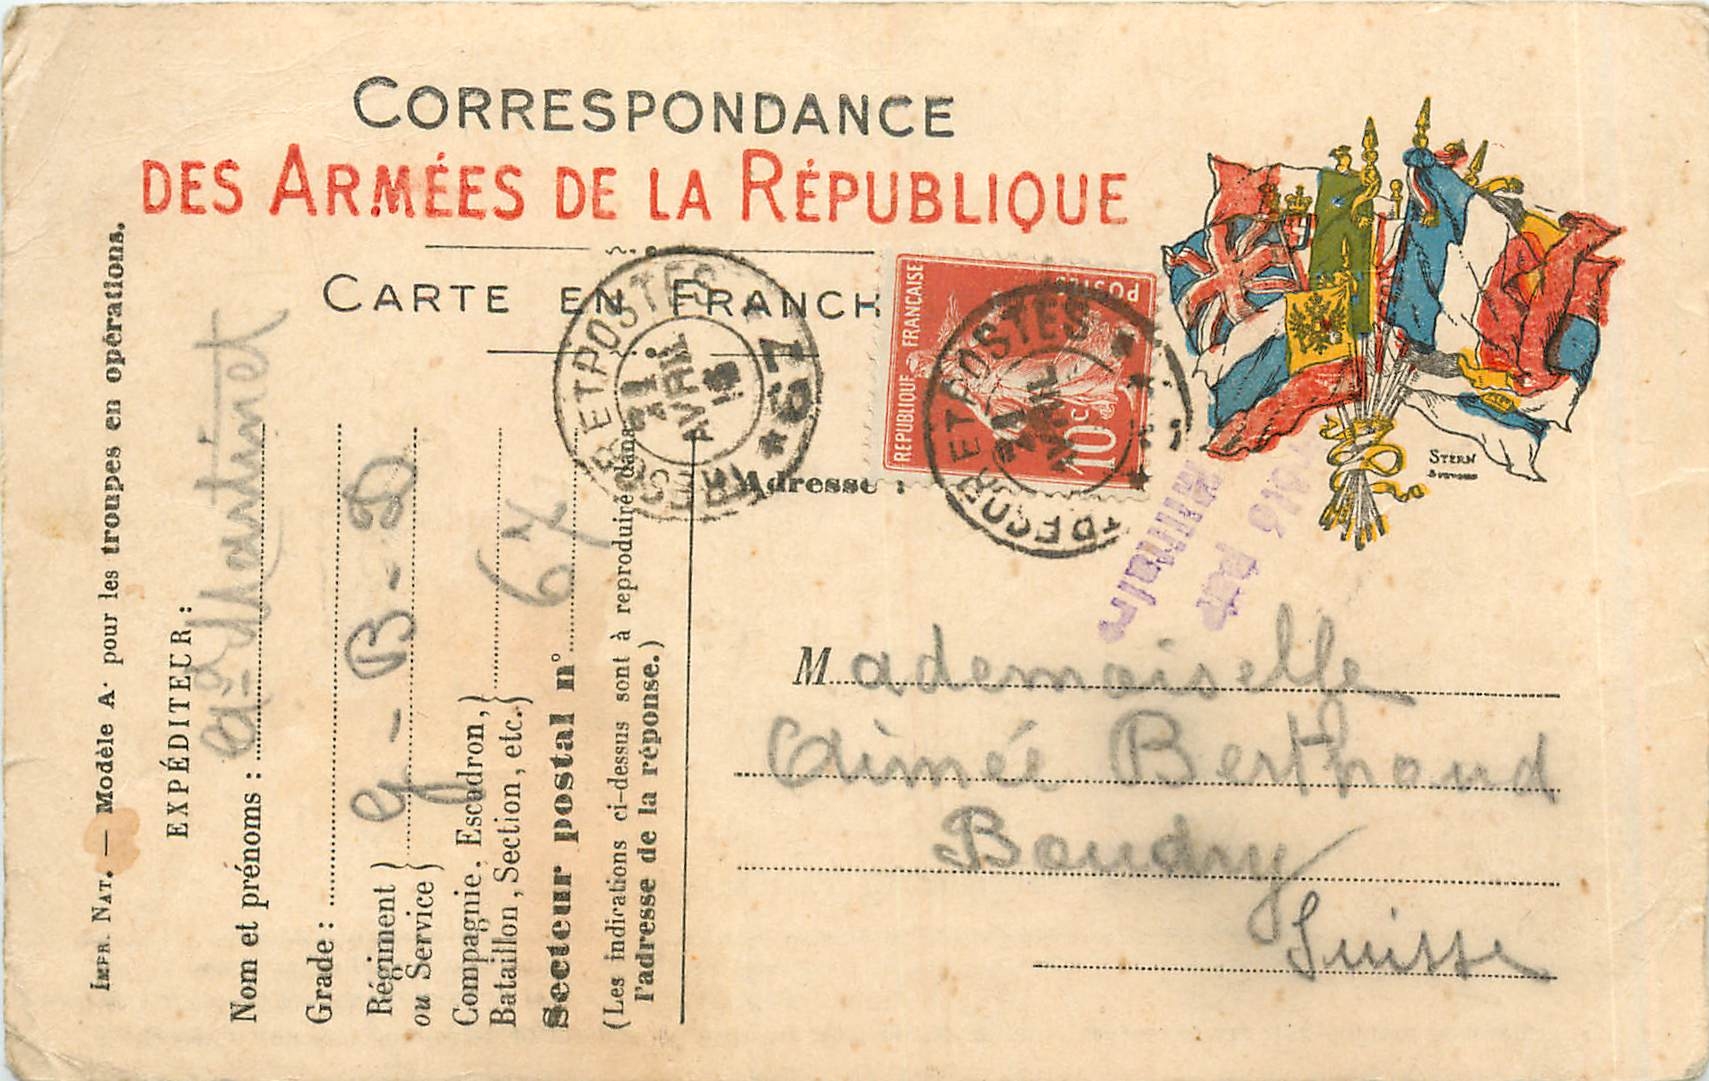 CORRESPONDANCE
DES ARMÉES DE LA RÉPUBLIQUE
CARTE EN FRANCH
IMPR. NAT. — Modèle A. pour les troupes en opérations.
EXPÉDITEUR :
Nom et prénoms : Martinet
Grade :
Régiment
ou Service } G - B - D
Compagnie. Escadron, }
Bataillon, Section, etc. }
Secteur postal n° 67
(Les indications ci-dessus sont à reproduire dans
l'adresse de la réponse.)
ET POSTES
21
AVRIL
* 67
REPUBLIQUE FRANCAISE
POSTES
10c
ET POSTES
21
AVRIL
STERN
Adresse :
Mademoiselle
Aimée Berthoud
Boudry
Suisse